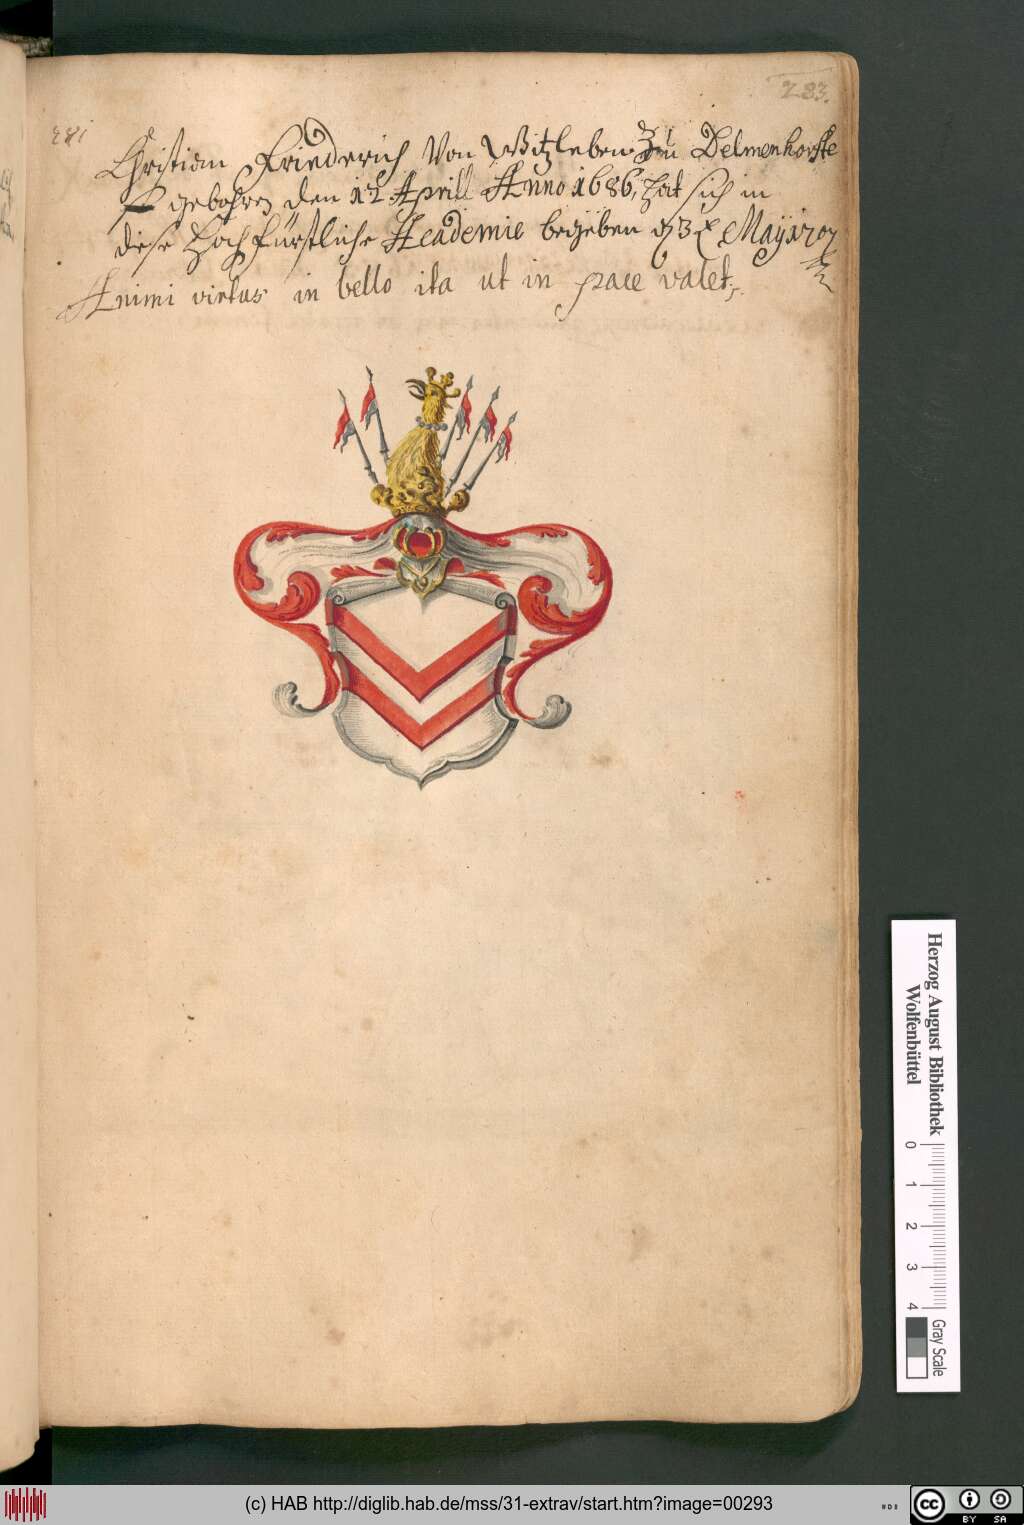 283.
281
Christian Friederich Von Witzleben Zu Delmenhorste
gebohren den 12 Aprill Anno 1686, hat sich in
diese Hochfürstliche Academie begeben Mayi 1707
Animi virtus in bello ita ut in pace valet,
Herzog August Bibliothek
Wolfenbüttel
0 1 2 3 4
Gray Scale
(c) HAB http://diglib.hab.de/mss/31-extrav/start.htm?image=00293
cc BY SA